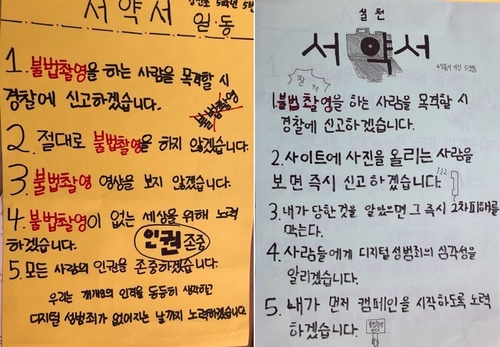 서약서 일·동
1. 불법촬영을 하는 사람을 목격할 시
경찰에 신고하겠습니다.
불법촬영
2. 절대로 불법촬영을 하지 않겠습니다.
3. 불법촬영 영상을 보지 않겠습니다.
4. 불법촬영이 없는 세상을 위해 노력
하겠습니다.
인권 존중
5. 모든 사람의 인권을 존중하겠습니다.
우리는 개개인의 인격을 동등히 생각하고
디지털 성범죄가 없어지는 날까지 노력하겠습니다.
실천
서약서
찰칵
1. 불법촬영을 하는 사람을 목격할 시
경찰에 신고하겠습니다.
2. 사이트에 사진을 올리는 사람을
보면 즉시 신고하겠습니다.
112
3. 내가 당한것을 알았으면 그 즉시 2차피해를
막는다.
4. 사람들에게 디지털 성범죄의 심각성을
알리겠습니다.
5. 내가 먼저 캠페인을 시작하도록 노력
하겠습니다.